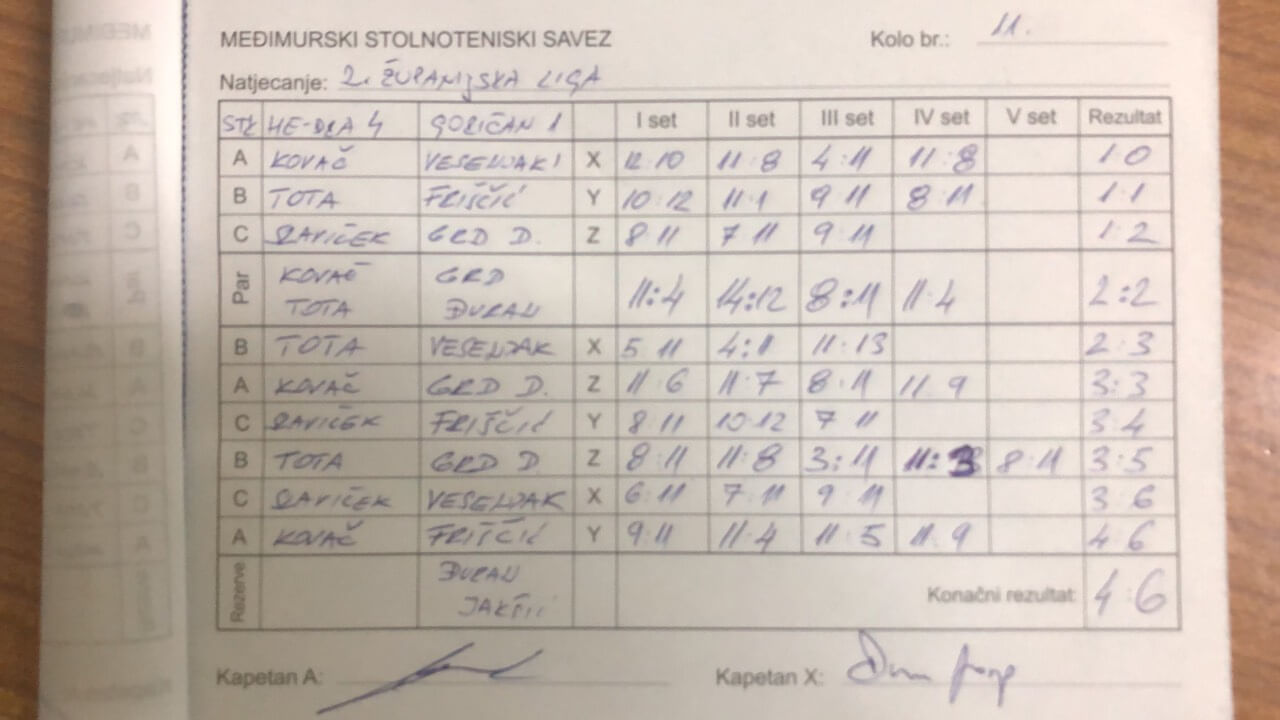 MEĐIMURSKI STOLNOTENISKI SAVEZ Kolo br.: 11.
Natjecanje: 2. ŽUPANIJSKA LIGA
STK HE-DRA 4 GORIČAN 1 I set II set III set IV set V set Rezultat
A KOVAČ VESENJAK X 12:10 11:8 4:11 11:8 1:0
B TOTA FRIŠČIĆ Y 10:12 11:1 9:11 8:11 1:1
C SLAVIČEK GRD D. Z 8:11 7:11 9:11 1:2
Par KOVAČ GRD
TOTA ĐURAN 11:4 14:12 8:11 11:4 2:2
B TOTA VESENJAK X 5:11 4:11 11:13 2:3
A KOVAČ GRD D. Z 11:6 11:7 8:11 11:9 3:3
C SLAVIČEK FRIŠČIĆ Y 8:11 10:12 7:11 3:4
B TOTA GRD D Z 8:11 11:8 3:11 11:3 8:11 3:5
C SLAVIČEK VESENJAK X 6:11 7:11 9:11 3:6
A KOVAČ FRIŠČIĆ Y 9:11 11:4 11:5 11:9 4:6
Rezerve ĐURAN
JAKŠIĆ Konačni rezultat: 4:6
Kapetan A: Kapetan X: